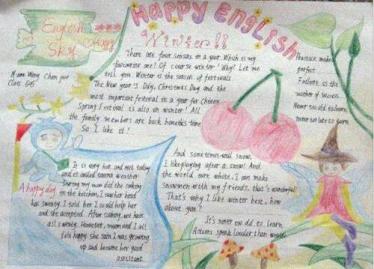 Happy English
English
Sky
Winter
Name: Wang Chen yue
Class 6(6)
There are four seasons in a year. Which is my
favourite one? Of course winter! Why? Let me
tell you. Winter is the season of festivals
The New year's Day, Christmas Day and the
most important festival in a year for Chinese
Spring Festival is also in winter! All
the family members are back home
So I like it!
Practice makes
perfect.
Failure is the
mother of success.
Never too late to learn.
A happy day
It is very hot and wet today
and it called sauna weather
During my mum did the cooking
in the kitchen, I saw her head
was sweating. I told her I could help her
and she accepted. After cooking, we have
all sweaty. However, mum and I all
felt happy. She saw I was growing
up and became her good
assistant.
And sometimes snow,
I like playing after a snow! And
the world is white. I can make
snowmen with my friends, that's wonderful!
That's why I like winter here, how
about you?
It's never too old to learn.
Actions speak louder than words